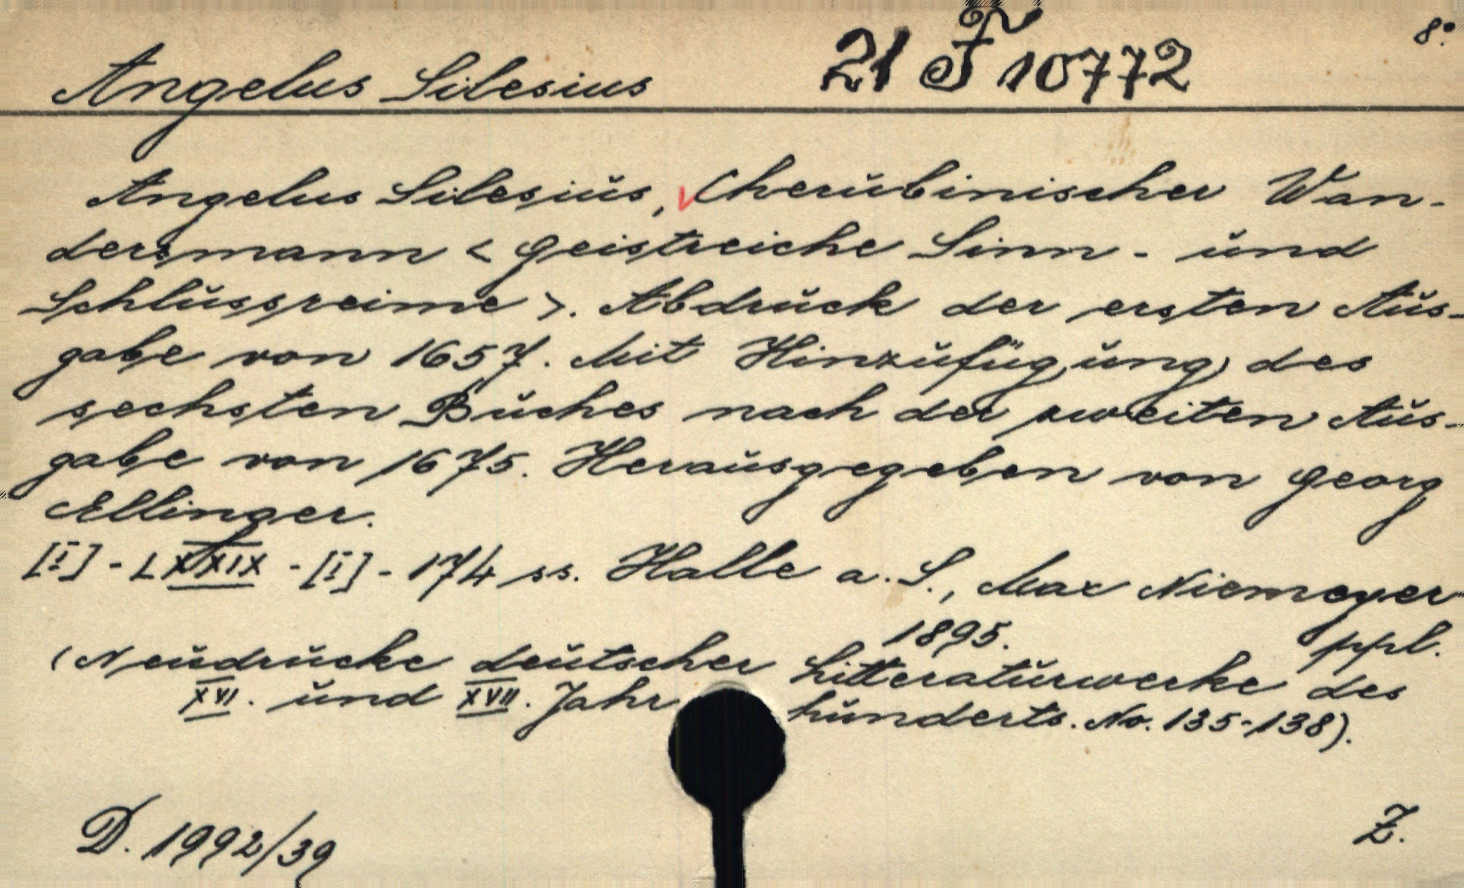 Angelus Silesius 21 F 10772 8°.
Angelus Silesius, Cherubinischer Wan-
dersmann < Geistreiche Sinn- und
Schlussreime >. Abdruck der ersten Aus-
gabe von 1657. Mit Hinzufügung des
sechsten Buches nach der zweiten Aus-
gabe von 1675. Herausgegeben von Georg
Ellinger.
[I] - LXXXIX - [I] - 174 ss. Halle a. S., Max Niemeyer
1895. ppl.
(Neudrucke deutscher Litteraturwerke des
XVI. und XVII. Jahrhunderts. No. 135-138).
D. 1992/39 Z.